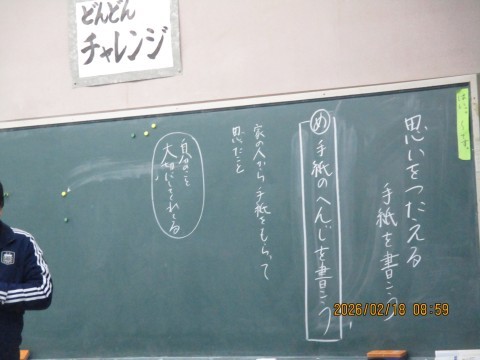 どんどん
チャレンジ
思いをつたえる
手紙を書こう
め 手紙のへんじを書こう
家の人から手紙をもらって
思ったこと
大切にされてる
2026/02/18 08:59